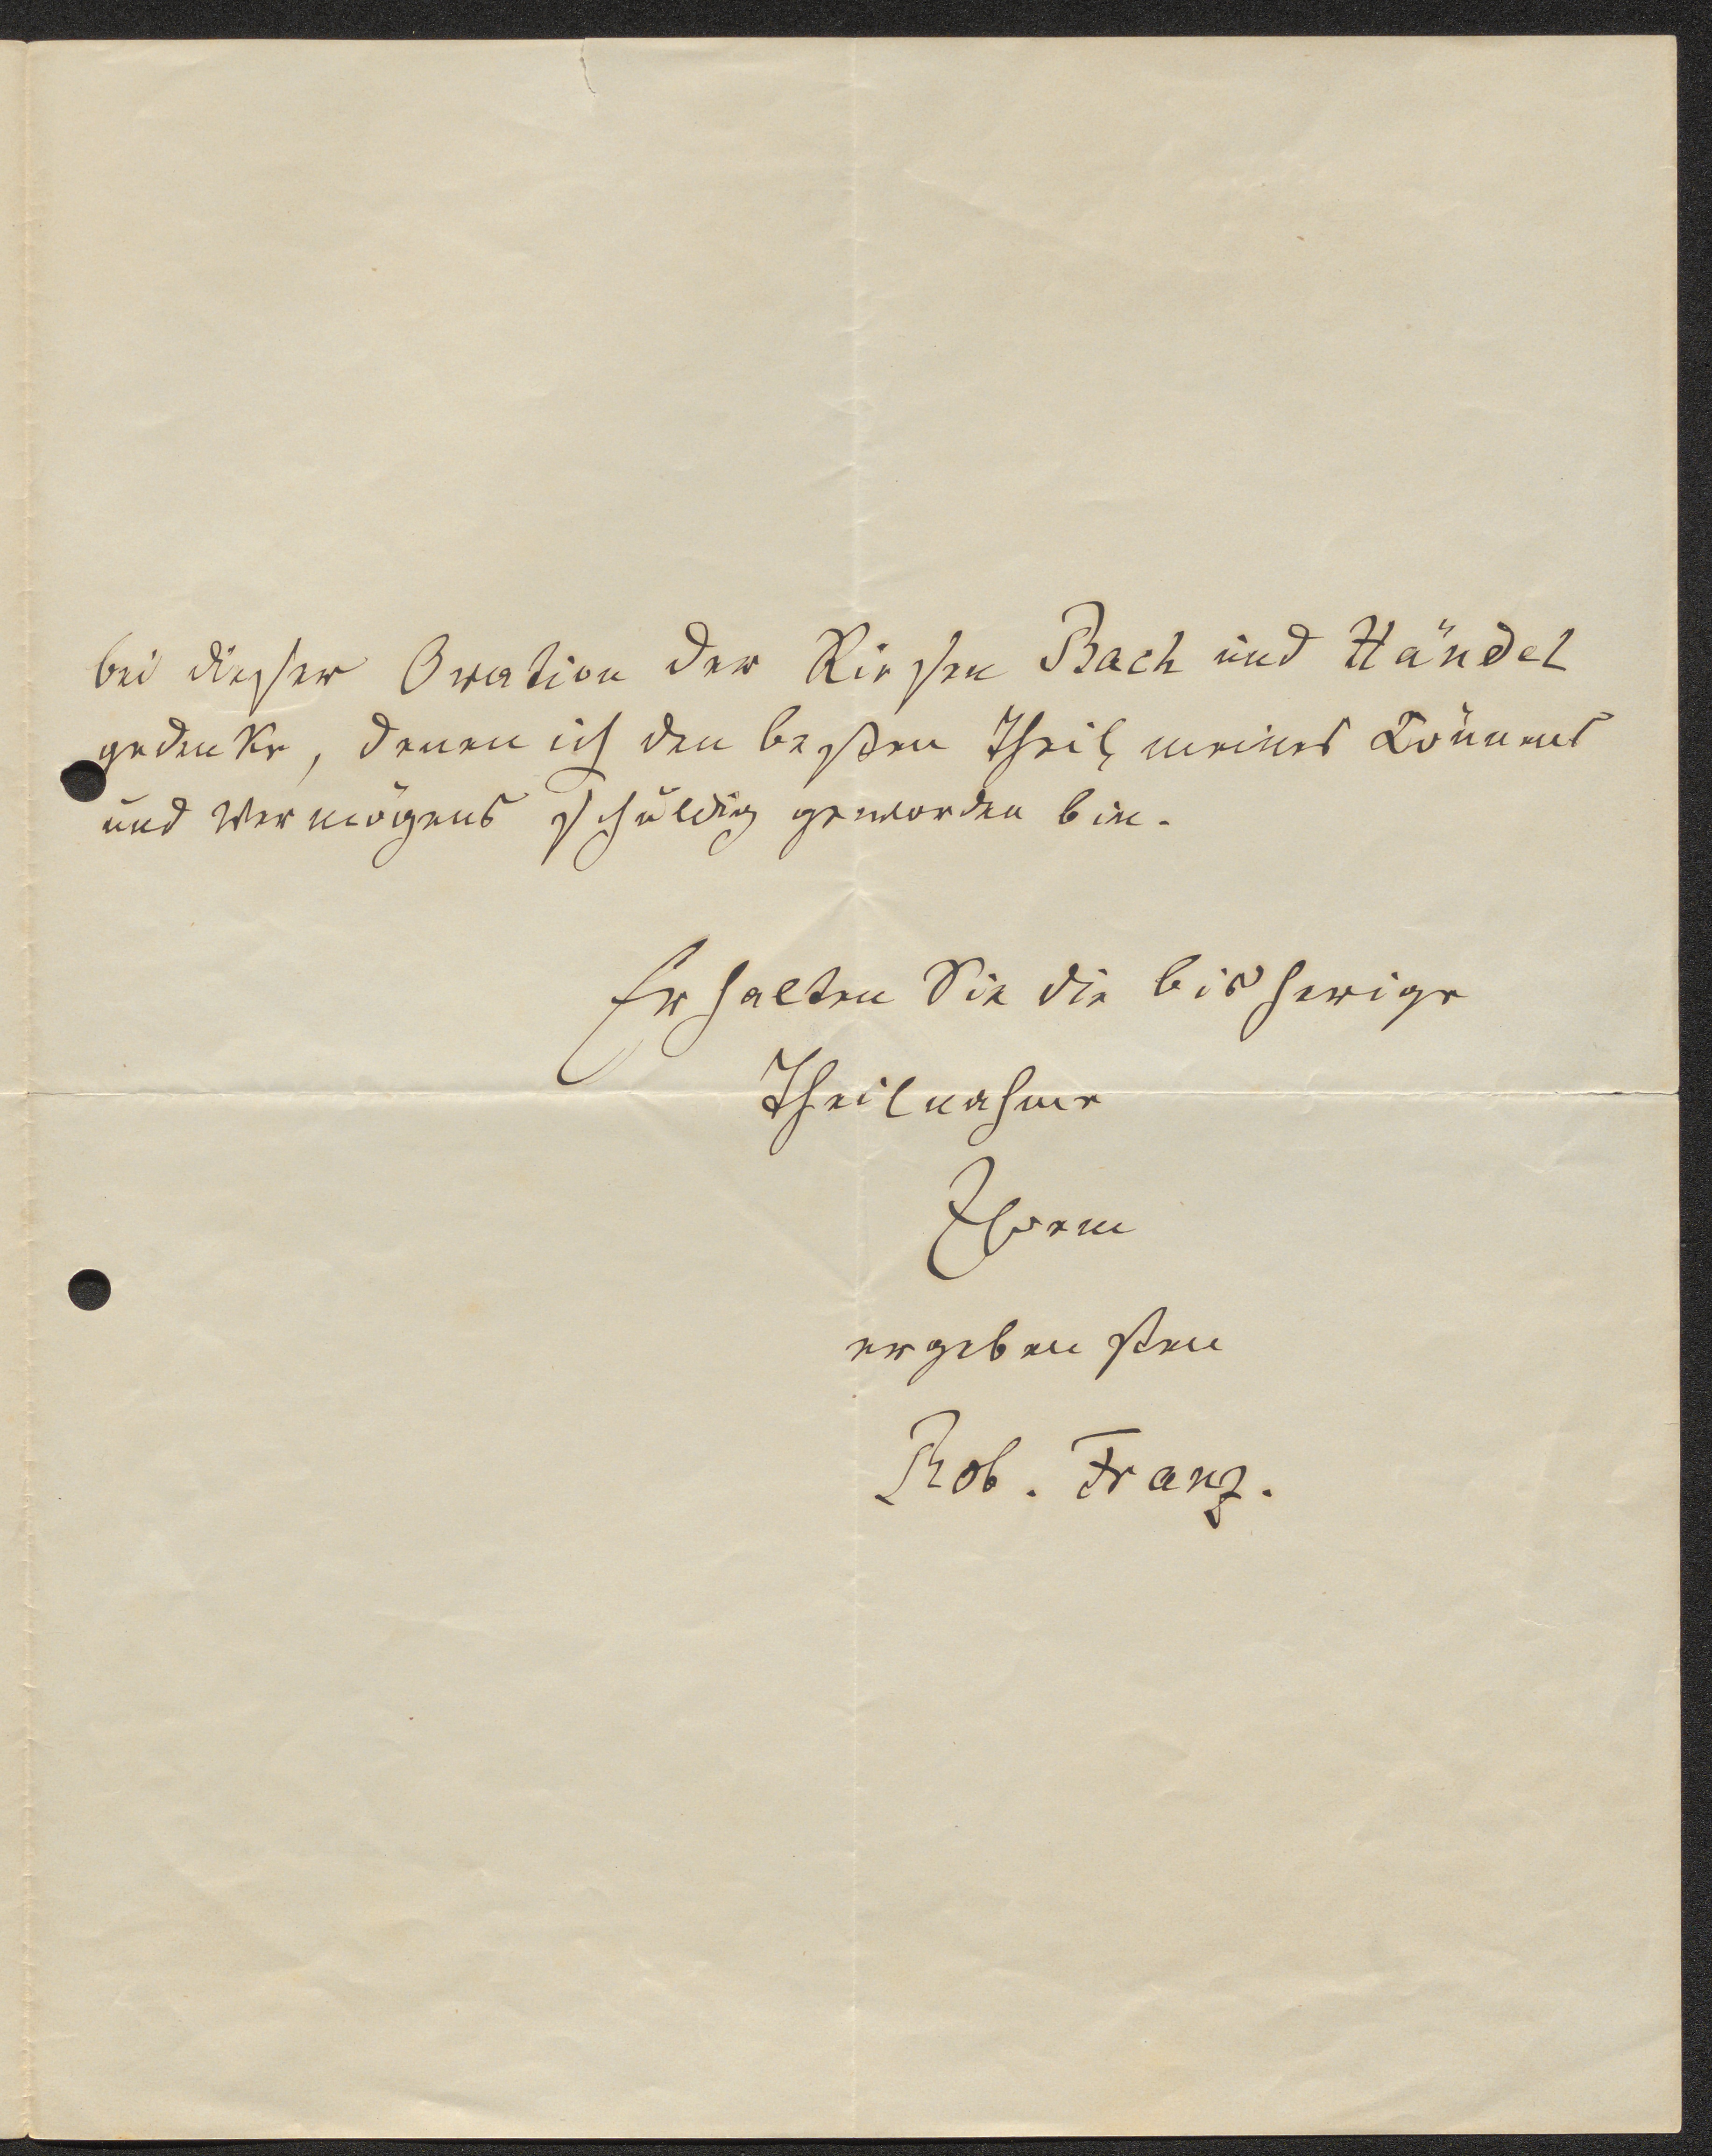 bei dieser Ovation der Riesen Bach und Händel
gedenke, denen ich den besten Theil meines Könnens
und Vermögens schuldig geworden bin.
Erhalten Sie die bisherige
Theilnahme
Ihrem
ergebensten
Rob. Franz.